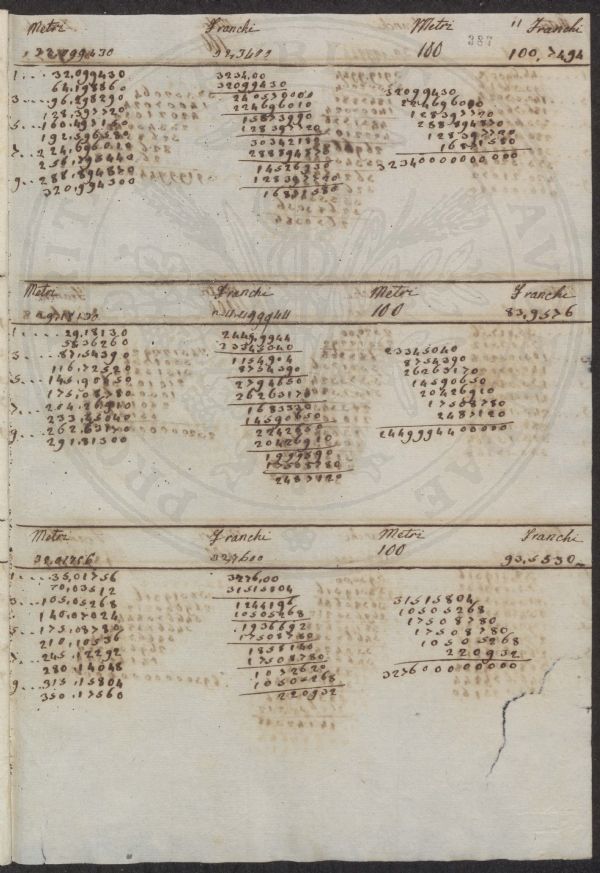 Metri Franchi Metri " Franchi
387
32,099430 323400 100 100,7494
1 .... 32,099430
64,198860
3 .... 96,298290
128,397720
5 ... 160,497150
192,596580
7 ... 224,696010
256,795440
9 ... 288,894870
320,994300
3234,00
32099430
240570000
224696010
15873990
128397720
30342180
288894870
14526930
128397720
16871580
32099430
224696010
128397720
288894870
128397720
16871580
3234000000000
Metri Franchi Metri Franchi
29,18130 2449,9944 100 83,9576
1 .... 29,18130
58,36260
3 .... 87,54390
116,72520
5 .... 145,90650
175,08780
7 .... 204,26910
233,45040
9 .... 262,63170
291,81300
2449,9944
23345040
1154904
8754390
2794650
26263170
1683330
14590650
2242650
20426910
1999590
17508780
2487120
23345040
8754390
26263170
14590650
20426910
17508780
2487120
2449994400000
Metri Franchi Metri Franchi
35,01756 327600 100 93,5530
1 .... 35,01756
70,03512
3 .... 105,05268
140,07024
5 .... 175,08780
210,10536
7 .... 245,12292
280,14048
9 .... 315,15804
350,17560
3276,00
31515804
1244196
10505268
1936692
17508780
1858140
17508780
1072620
10505268
220932
31515804
10505268
17508780
17508780
10505268
220932
3276000000000